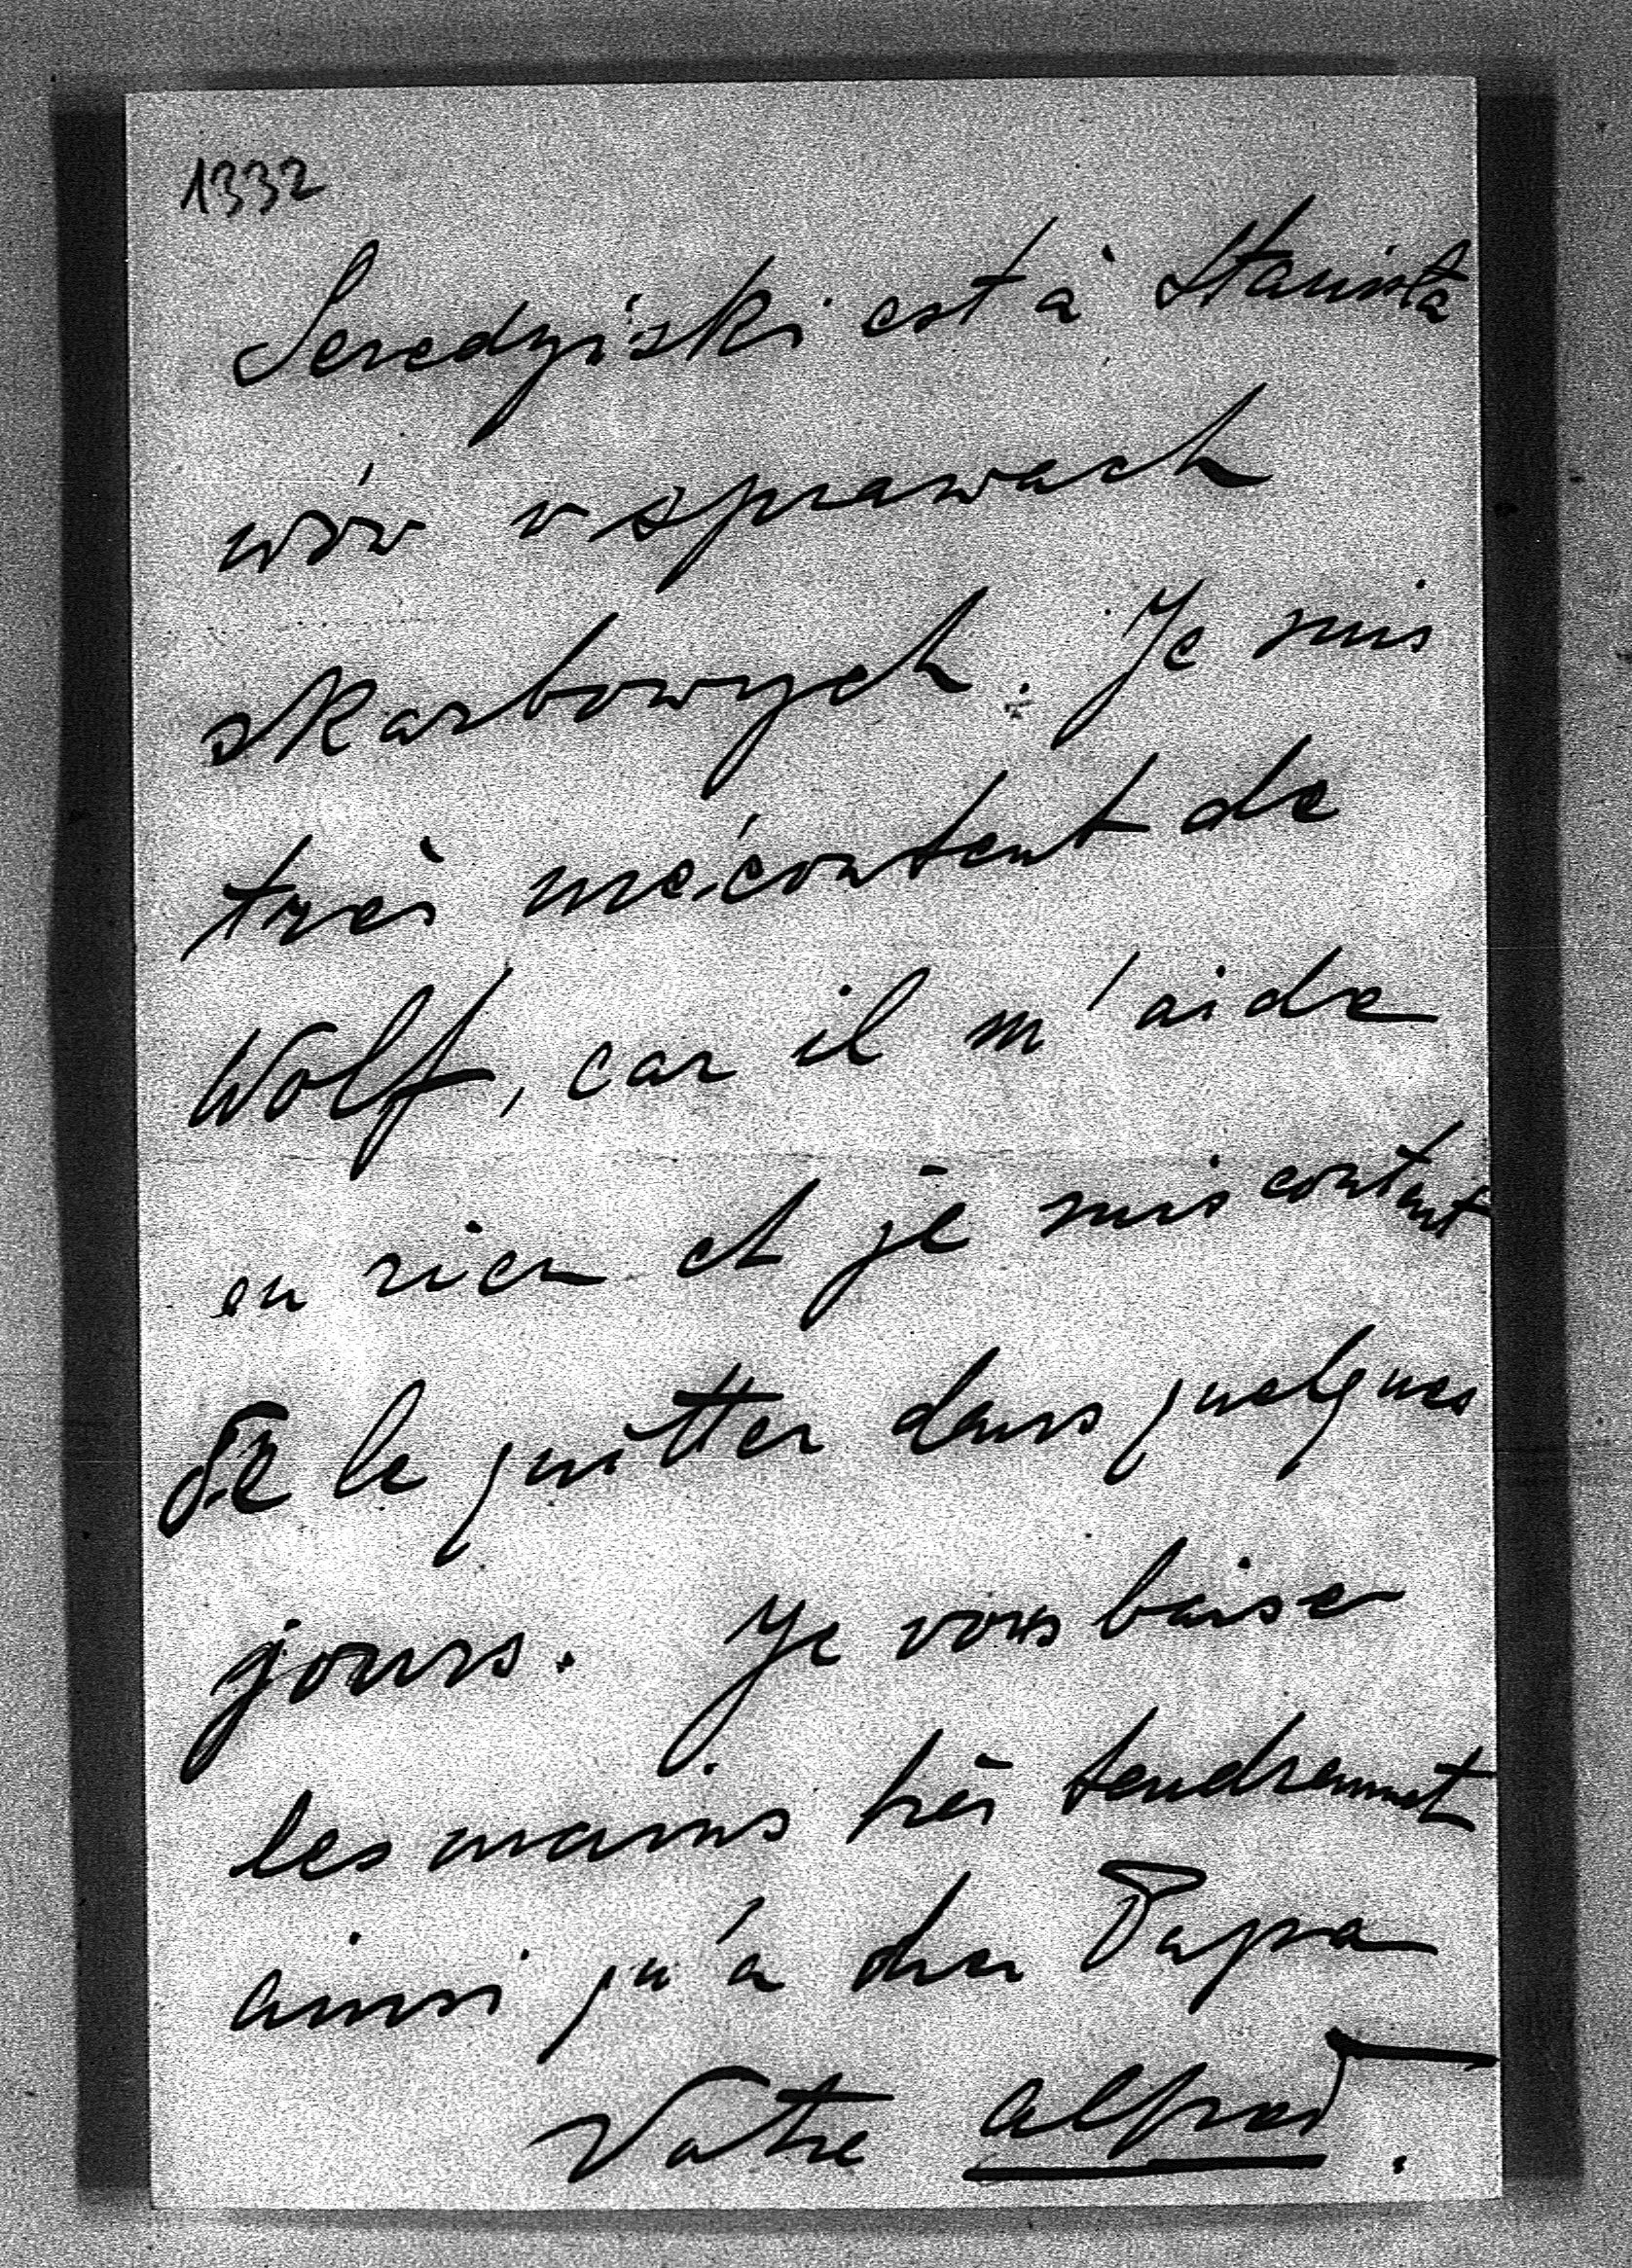 1332
Seredyński est à Stanisła
wów w sprawach
skarbowych. Je suis
très mécontent de
Wolf, car il m'aide
en rien et je suis content
de le quitter dans quelques
jours. Je vous baise
les mains très tendrement
ainsi qu'à cher Papa
Votre Alfred.